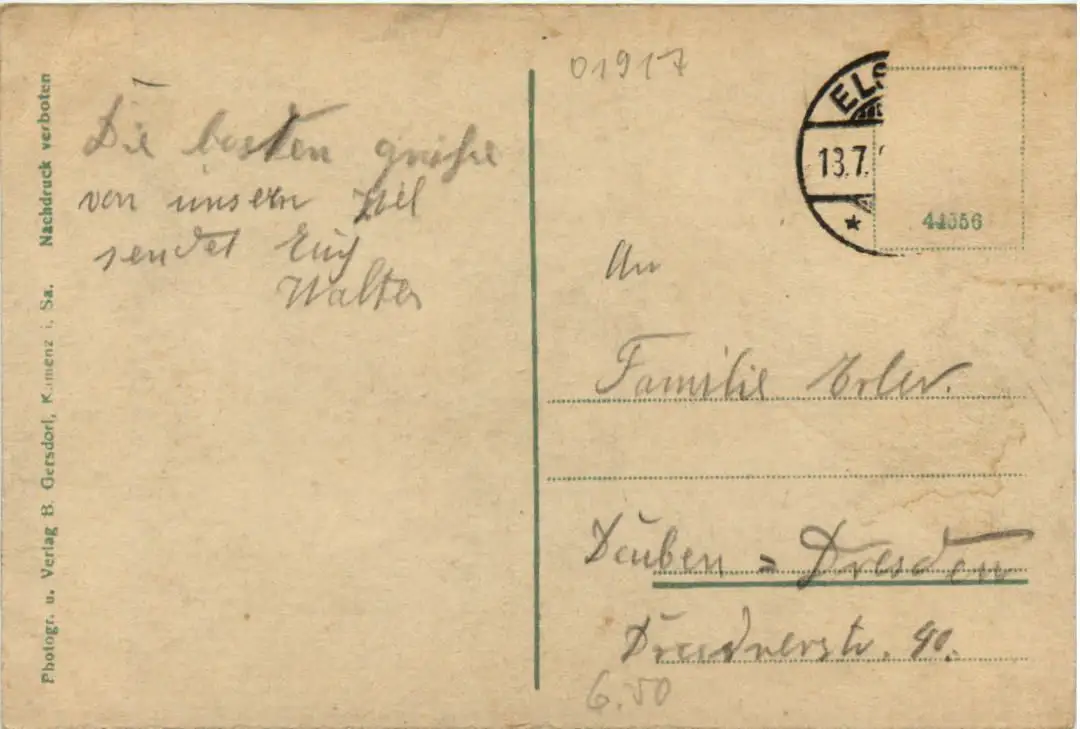 Die besten grüße
von unsern Ziel
sendet Euch
Walter
Photogr. u. Verlag B. Gersdorf, Kamenz i. Sa. Nachdruck verboten
01917
ELS
18.7.
44356
An
Familie Erler.
Deuben = Dresden
Dresdnerstr. 90.
6.50